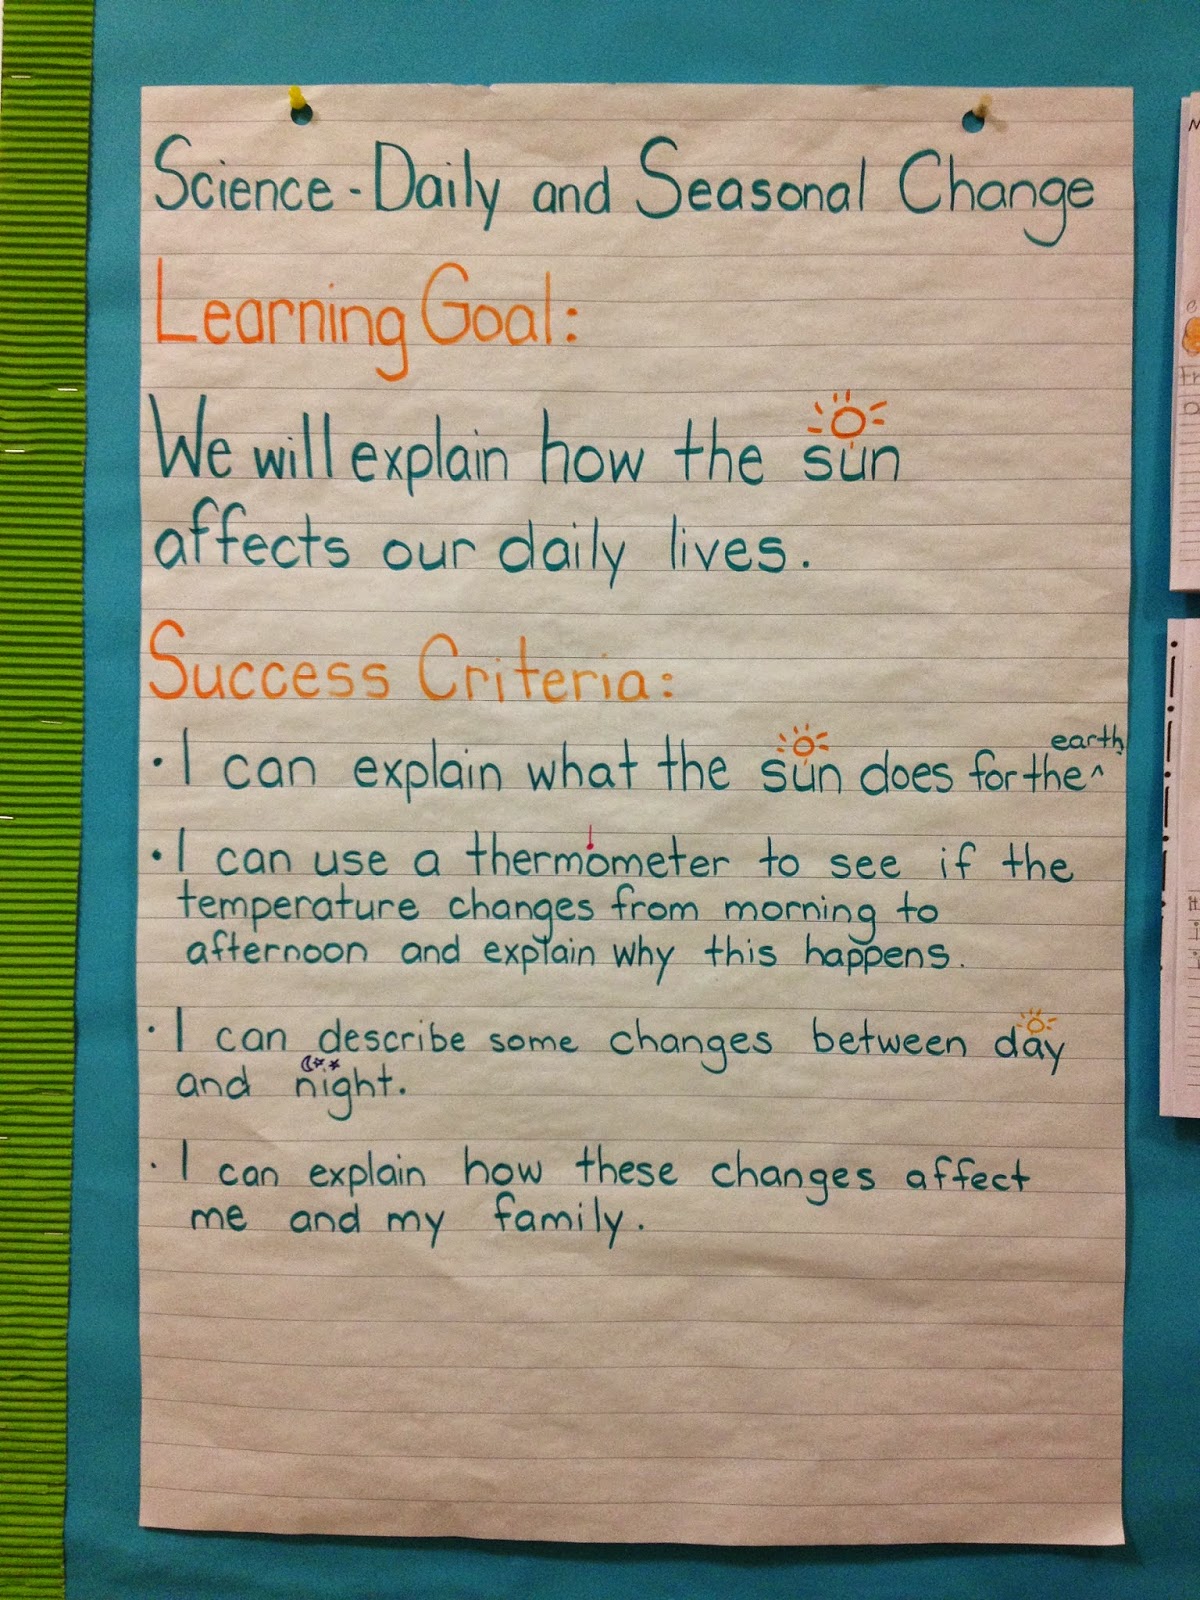 Science - Daily and Seasonal Change
Learning Goal:
We will explain how the sun
affects our daily lives.
Success Criteria:
• I can explain what the sun does for the ^ earth.
• I can use a thermometer to see if the
temperature changes from morning to
afternoon and explain why this happens.
• I can describe some changes between day
and night.
• I can explain how these changes affect
me and my family.